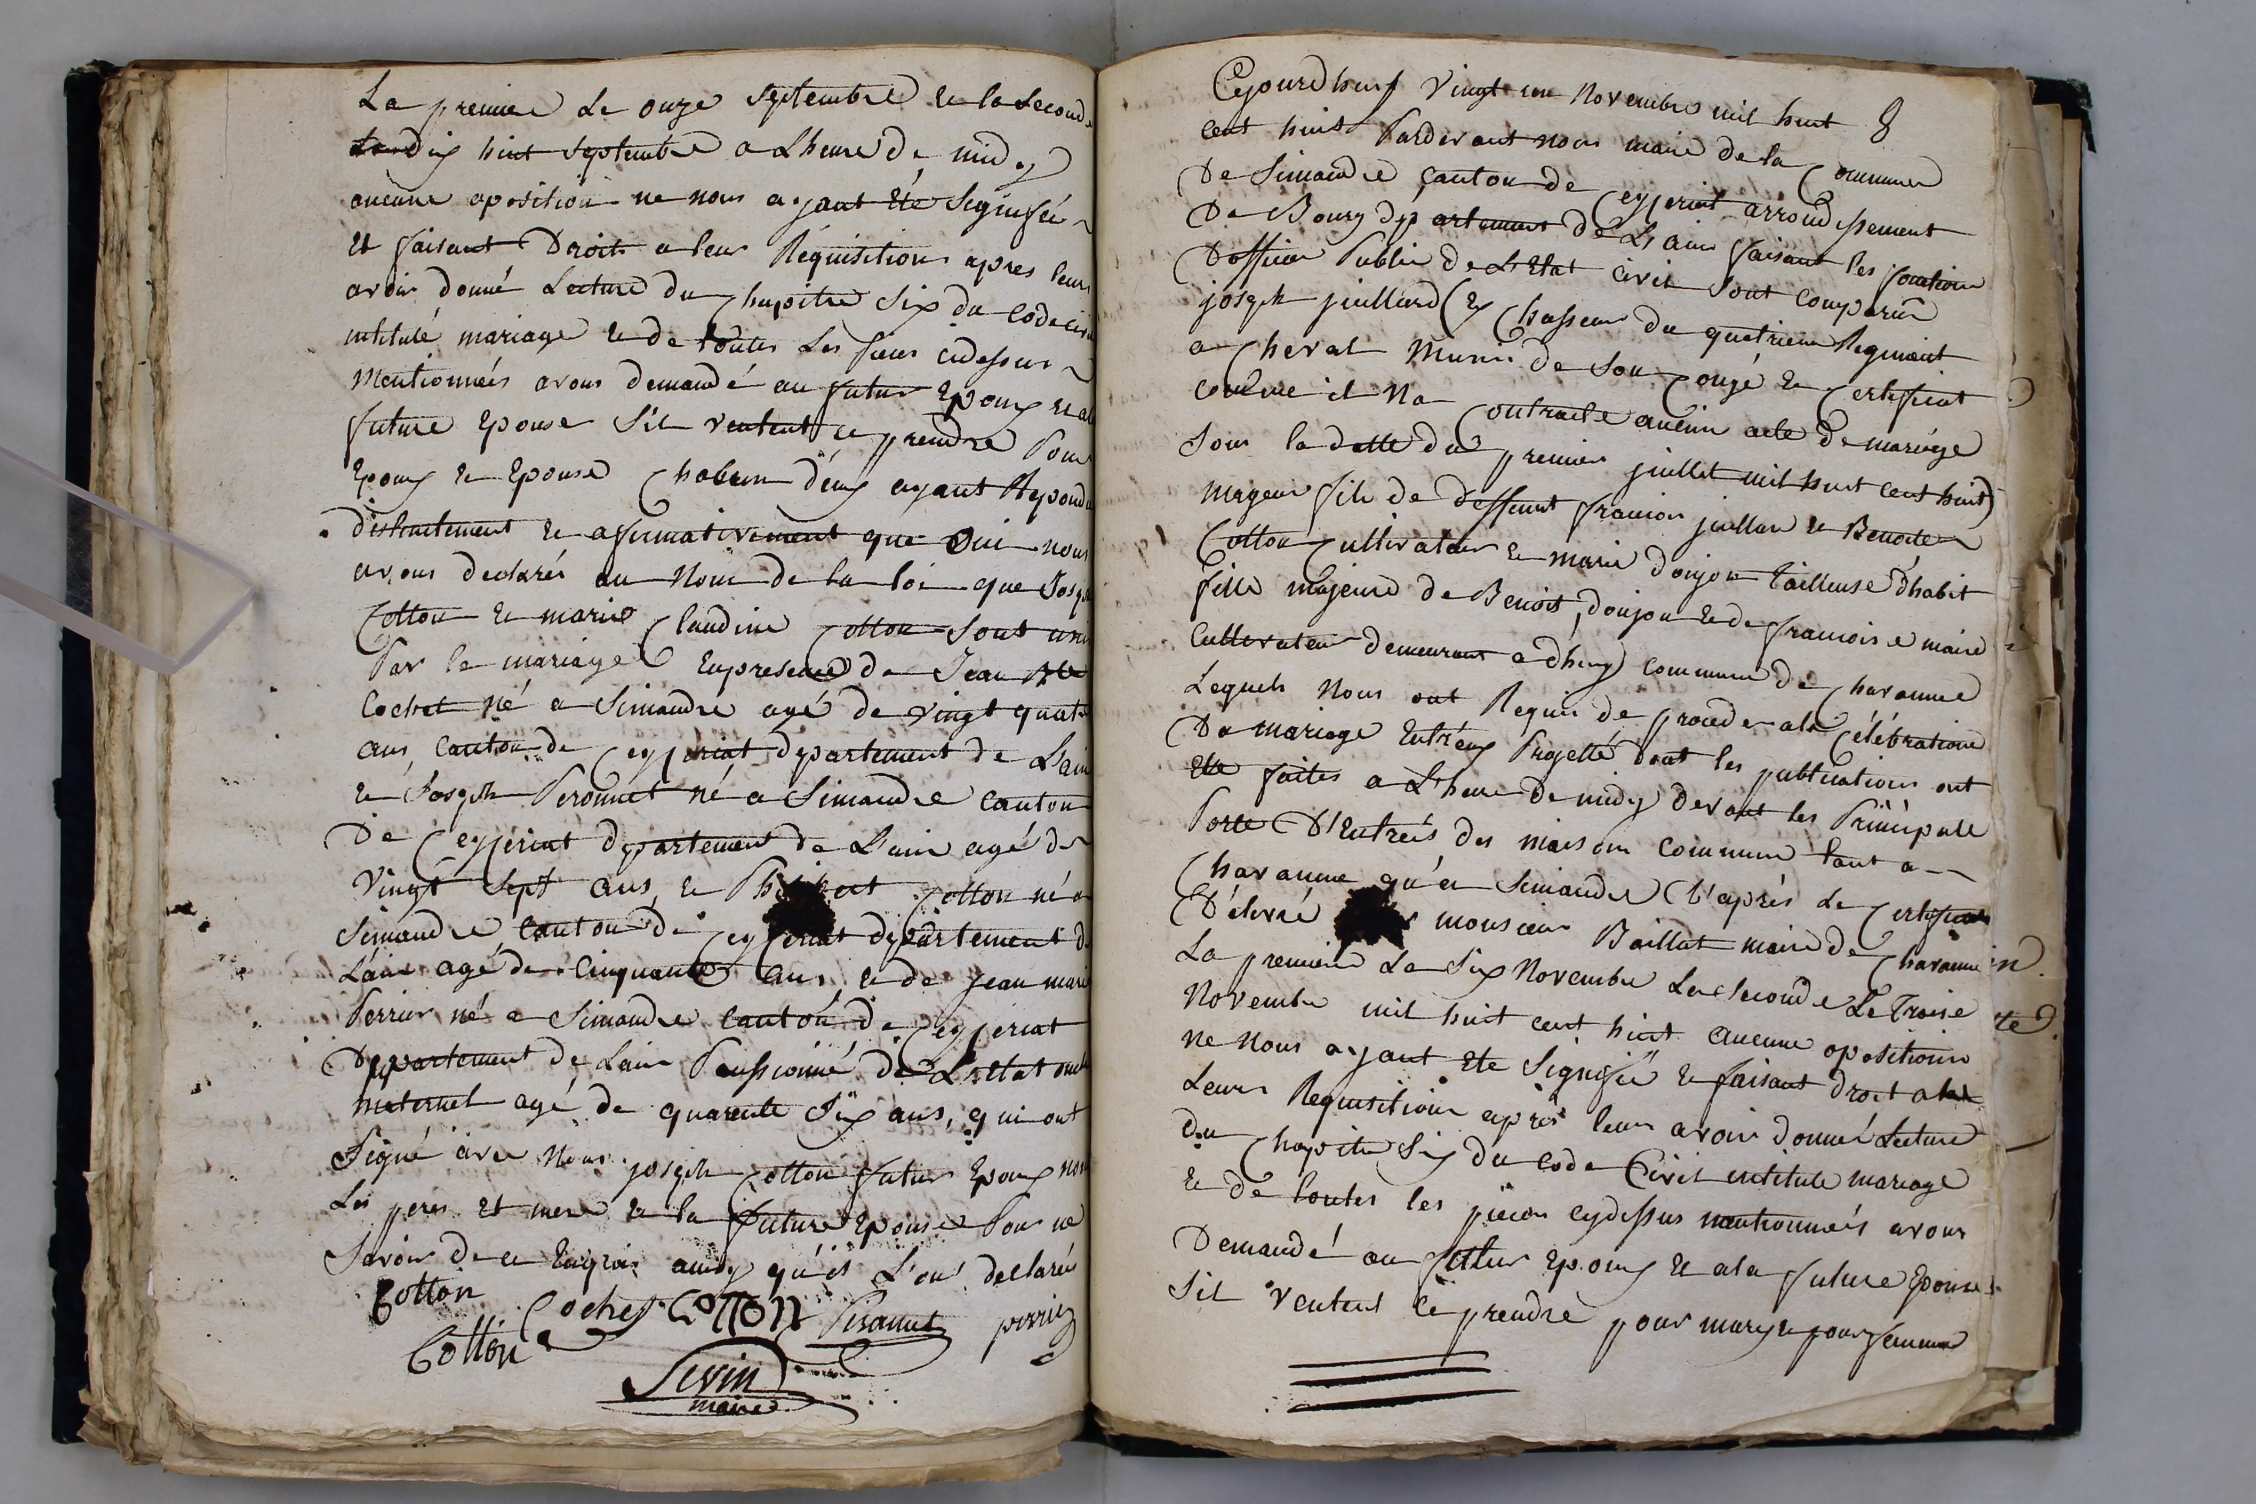 La premiere Le onze septembre et la seconde
Le dix huit septembre a Lheure de midy
aucune oposition ne nous ayant été Signifiée
Et faisant Droit a leur Réquisition apres leurs
avoir donné Lecture du Chapitre Six du Code civil
intitulé mariage et de toutes Les pieces cidessus
Mentionnées avons demandé au futur Epoux et a la
future Epouse Sil veulent ce prendre Pour
Epoux et Epouse Chacun d'eux ayant Repondu
distinctement et afirmativement que Oui nous
avons declarés au Nom de la loi que Joseph
Cotton et marie Claudine Cotton Sont unis
Par le mariage En presence de Jean Bte
Cochet né a Simandre agé de vingt quatre
ans, canton de Ceyzeriat departement de Lain
et Joseph Peronnet né a Simandre canton
De Ceyzeriat departement de Lain agé de
vingt Sept ans et Cotton né a
Simandre canton de Ceyzeriat departement de
Lain agé de Cinquante ans, et de Jean marie
Perrier né a Simandre canton de Ceyzeriat
Departement de Lain Penssionné de L'Etat oncle
maternel agé de quarente Six ans, qui ont
Signé avec Nous joseph Cotton futur Epoux non
Les peres Et mere et la future Epouse Pour ne
Savoir de ce Enquis ainsy qu'il L'on declarés
Cotton Cochet Cotton perrier
Cotton
Sevin
maire
8
Cejourdhuy Vingt un Novembre mil huit
cent huit Pardevant nous maire de la Commune
De Simandre canton de Ceyzeriat arrondissement
De Bourg departement de L'ain faisant les fonction
Dofficier Public de L'Etat civil Sont comparu
joseph juillard (Ex Chasseur du quatrieme Regiment
a Cheval Muni de Son Congé et Certificat
comme il Na Contracté aucun acte de mariage
Sous la datte du premier juillet mil huit cent huit)
Majeur fils de deffunt francois juillard et Benoite
Cotton Cultivateur et marie donjon tailleuse d'habit
fille majeure de Benoit donjon et de francoise maire
Cultivateur demeurant a dhuys commune de Chavanne
Lequels Nous ont Requis de proceder a la Célébration
Du mariage Entr'eux Projetté dont les publications ont
Eté faites a L'heure de midy devant les Principale
Porte D'Entrées des maison commune tant a
Chavanne qu'a Simandre (d'après Le Certificat
Délivré monsieur Baillat maire de Chavanne
La premiere Le Six Novembre La Seconde Le Treise
Novembre mil huit cent huit aucune oposition
Ne Nous ayant Eté Signifiée et faisant droit a la
Leurs Requisition après leurs avoir donné Lecture
Du Chapitre Six du Code Civil intitulé mariage
et de toutes les pieces cydessus mentionnées avons
Demandé au futur Epoux et a la future Epouse
Sil veulent ce prendre pour mary et pour femme